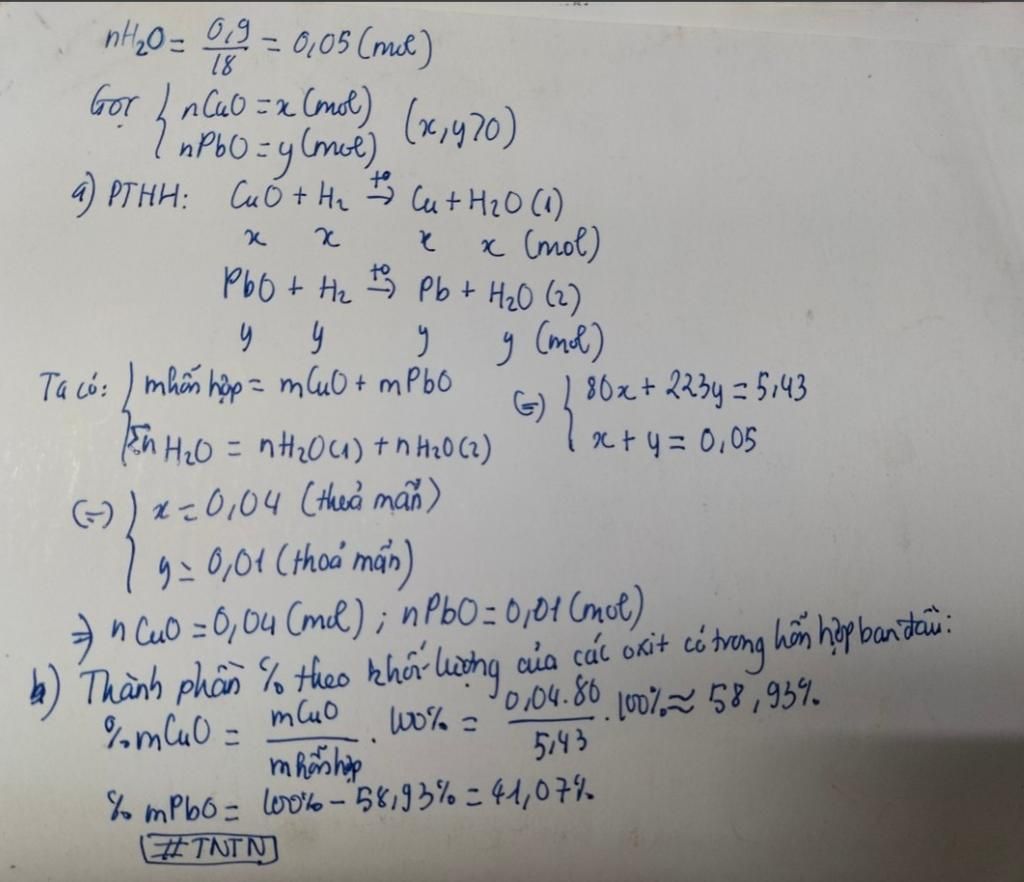 nH₂O = 0,9/18 = 0,05 (mol)
Gọi { nCuO = x (mol) (x, y > 0)
nPbO = y (mol)
a) PTHH: CuO + H₂ →(t°) Cu + H₂O (1)
x x x x (mol)
PbO + H₂ →(t°) Pb + H₂O (2)
y y y y (mol)
Ta có: { m hỗn hợp = mCuO + mPbO (=) { 80x + 223y = 5,43
Σn H₂O = nH₂O(1) + nH₂O(2) x + y = 0,05
(=) { x = 0,04 (thoả mãn)
y = 0,01 (thoả mãn)
⇒ nCuO = 0,04 (mol) ; nPbO = 0,01 (mol)
b) Thành phần % theo khối lượng của các oxit có trong hỗn hợp ban đầu:
%mCuO = mCuO/m hỗn hợp . 100% = 0,04.80/5,43 . 100% ≈ 58,93%
% mPbO = 100% - 58,93% = 41,07%
#TNTN